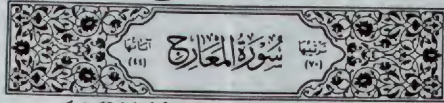 ترتيبها (٧٠) سُورَةُ الْمَعَارِجِ آياتها (٤٤)